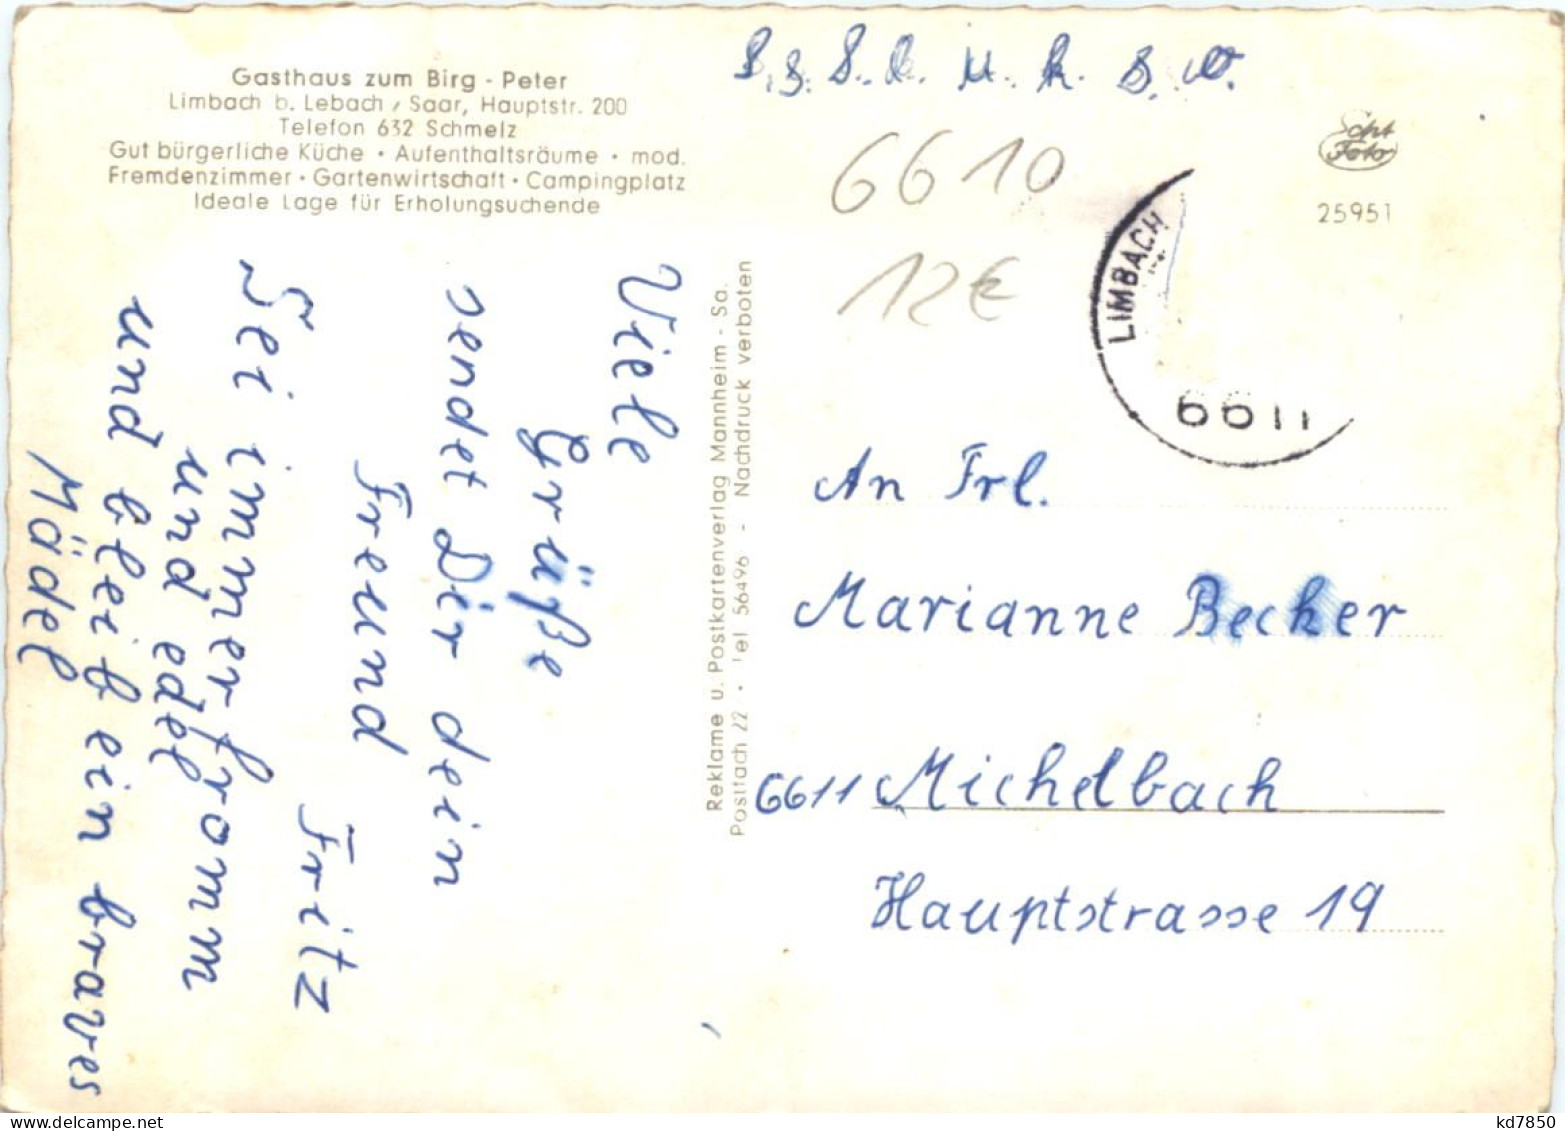 Gasthaus zum Birg - Peter
Limbach b. Lebach, Saar, Hauptstr. 200
Telefon 632 Schmelz
Gut bürgerliche Küche • Aufenthaltsräume • mod.
Fremdenzimmer • Gartenwirtschaft • Campingplatz
Ideale Lage für Erholungsuchende
Viele
Grüße
sendet Dir dein
Freund
Fritz
Sei immer fromm
und edel
und bleib ein braves
Mädel
Reklame u. Postkartenverlag Mannheim - Sa.
Postfach 22 • Tel 56496 - Nachdruck verboten
6610
12€
LIMBACH
6611
25951
An Frl.
Marianne Becker
6611 Michelbach
Hauptstrasse 19
kd7850